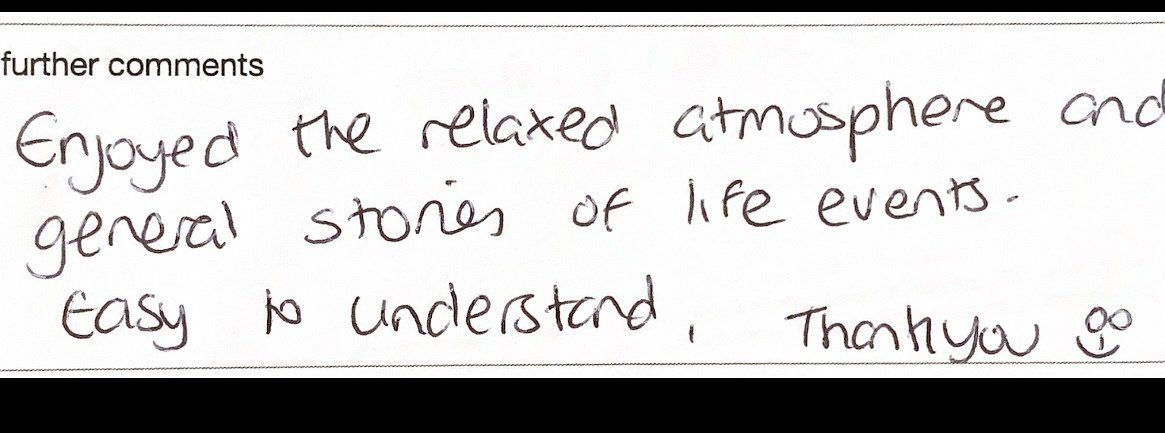 further comments
Enjoyed the relaxed atmosphere and
general stories of life events.
Easy to understand, Thankyou